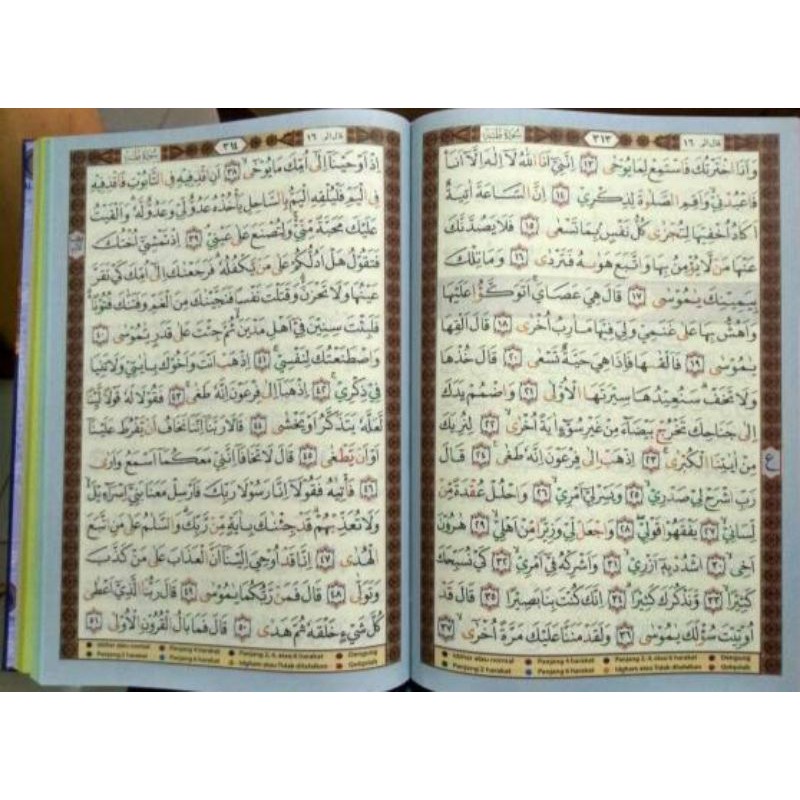 قال الم ١٦
٣١٣
سورة طه
وَاَنَا اخْتَرْتُكَ فَاسْتَمِعْ لِمَا يُوْحٰى ۝١٣ اِنَّنِيْٓ اَنَا اللّٰهُ لَآ اِلٰهَ اِلَّآ اَنَا۠
فَاعْبُدْنِيْۙ وَاَقِمِ الصَّلٰوةَ لِذِكْرِيْ ۝١٤ اِنَّ السَّاعَةَ اٰتِيَةٌ
اَكَادُ اُخْفِيْهَا لِتُجْزٰى كُلُّ نَفْسٍۢ بِمَا تَسْعٰى ۝١٥ فَلَا يَصُدَّنَّكَ
عَنْهَا مَنْ لَّا يُؤْمِنُ بِهَا وَاتَّبَعَ هَوٰىهُ فَتَرْدٰى ۝١٦ وَمَا تِلْكَ
بِيَمِيْنِكَ يٰمُوْسٰى ۝١٧ قَالَ هِيَ عَصَايَۚ اَتَوَكَّؤُا عَلَيْهَا
وَاَهُشُّ بِهَا عَلٰى غَنَمِيْ وَلِيَ فِيْهَا مَاٰرِبُ اُخْرٰى ۝١٨ قَالَ اَلْقِهَا
يٰمُوْسٰى ۝١٩ فَاَلْقٰىهَا فَاِذَا هِيَ حَيَّةٌ تَسْعٰى ۝٢٠ قَالَ خُذْهَا
وَلَا تَخَفْۗ سَنُعِيْدُهَا سِيْرَتَهَا الْاُوْلٰى ۝٢١ وَاضْمُمْ يَدَكَ
اِلٰى جَنَاحِكَ تَخْرُجْ بَيْضَاۤءَ مِنْ غَيْرِ سُوْۤءٍ اٰيَةً اُخْرٰىۙ ۝٢٢ لِنُرِيَكَ
مِنْ اٰيٰتِنَا الْكُبْرٰىۚ ۝٢٣ اِذْهَبْ اِلٰى فِرْعَوْنَ اِنَّهٗ طَغٰى ۝٢٤ قَالَ
رَبِّ اشْرَحْ لِيْ صَدْرِيْۙ ۝٢٥ وَيَسِّرْ لِيْٓ اَمْرِيْۙ ۝٢٦ وَاحْلُلْ عُقْدَةً مِّنْ
لِّسَانِيْۙ ۝٢٧ يَفْقَهُوْا قَوْلِيْۖ ۝٢٨ وَاجْعَلْ لِّيْ وَزِيْرًا مِّنْ اَهْلِيْۙ ۝٢٩ هٰرُوْنَ
اَخِىۙ ۝٣٠ اشْدُدْ بِهٖٓ اَزْرِيْۙ ۝٣١ وَاَشْرِكْهُ فِيْٓ اَمْرِيْۙ ۝٣٢ كَيْ نُسَبِّحَكَ
كَثِيْرًاۙ ۝٣٣ وَّنَذْكُرَكَ كَثِيْرًاۗ ۝٣٤ اِنَّكَ كُنْتَ بِنَا بَصِيْرًا ۝٣٥ قَالَ قَدْ
اُوْتِيْتَ سُؤْلَكَ يٰمُوْسٰى ۝٣٦ وَلَقَدْ مَنَنَّا عَلَيْكَ مَرَّةً اُخْرٰىٓۙ ۝٣٧
ع
Idzhar atau normal Panjang 4 harakat Panjang 2, 4, atau 6 harakat Dengung
Panjang 2 harakat Panjang 6 harakat Idgham atau Tidak dilafalkan Qalqalah
قال الم ١٦
٣١٤
سورة طه
اِذْ اَوْحَيْنَآ اِلٰٓى اُمِّكَ مَا يُوْحٰىٓۙ ۝٣٨ اَنِ اقْذِفِيْهِ فِى التَّابُوْتِ فَاقْذِفِيْهِ
فِى الْيَمِّ فَلْيُلْقِهِ الْيَمُّ بِالسَّاحِلِ يَأْخُذْهُ عَدُوٌّ لِّيْ وَعَدُوٌّ لَّهٗۗ وَاَلْقَيْتُ
عَلَيْكَ مَحَبَّةً مِّنِّيْ ەۚ وَلِتُصْنَعَ عَلٰى عَيْنِيْۘ ۝٣٩ اِذْ تَمْشِيْٓ اُخْتُكَ
فَتَقُوْلُ هَلْ اَدُلُّكُمْ عَلٰى مَنْ يَّكْفُلُهٗۗ فَرَجَعْنٰكَ اِلٰٓى اُمِّكَ كَيْ تَقَرَّ
عَيْنُهَا وَلَا تَحْزَنَ ەۗ وَقَتَلْتَ نَفْسًا فَنَجَّيْنٰكَ مِنَ الْغَمِّ وَفَتَنّٰكَ فُتُوْنًا ەۗ
فَلَبِثْتَ سِنِيْنَ فِيْٓ اَهْلِ مَدْيَنَ ەۙ ثُمَّ جِئْتَ عَلٰى قَدَرٍ يّٰمُوْسٰى ۝٤٠
وَاصْطَنَعْتُكَ لِنَفْسِيْۚ ۝٤١ اِذْهَبْ اَنْتَ وَاَخُوْكَ بِاٰيٰتِيْ وَلَا تَنِيَا
فِيْ ذِكْرِيْۚ ۝٤٢ اِذْهَبَآ اِلٰى فِرْعَوْنَ اِنَّهٗ طَغٰىۚ ۝٤٣ فَقُوْلَا لَهٗ قَوْلًا لَّيِّنًا
لَّعَلَّهٗ يَتَذَكَّرُ اَوْ يَخْشٰى ۝٤٤ قَالَا رَبَّنَآ اِنَّنَا نَخَافُ اَنْ يَّفْرُطَ عَلَيْنَآ
اَوْ اَنْ يَّطْغٰى ۝٤٥ قَالَ لَا تَخَافَآ اِنَّنِيْ مَعَكُمَآ اَسْمَعُ وَاَرٰى
۝٤٦ فَأْتِيٰهُ فَقُوْلَآ اِنَّا رَسُوْلَا رَبِّكَ فَاَرْسِلْ مَعَنَا بَنِيْٓ اِسْرَاۤءِيْلَ ەۙ
وَلَا تُعَذِّبْهُمْۗ قَدْ جِئْنٰكَ بِاٰيَةٍ مِّنْ رَّبِّكَ ۗ وَالسَّلٰمُ عَلٰى مَنِ اتَّبَعَ
الْهُدٰى ۝٤٧ اِنَّا قَدْ اُوْحِيَ اِلَيْنَآ اَنَّ الْعَذَابَ عَلٰى مَنْ كَذَّبَ
وَتَوَلّٰى ۝٤٨ قَالَ فَمَنْ رَّبُّكُمَا يٰمُوْسٰى ۝٤٩ قَالَ رَبُّنَا الَّذِيْٓ اَعْطٰى
كُلَّ شَيْءٍ خَلْقَهٗ ثُمَّ هَدٰى ۝٥٠ قَالَ فَمَا بَالُ الْقُرُوْنِ الْاُوْلٰى ۝٥١
Idzhar atau normal Panjang 4 harakat Panjang 2, 4, atau 6 harakat Dengung
Panjang 2 harakat Panjang 6 harakat Idgham atau Tidak dilafalkan Qalqalah